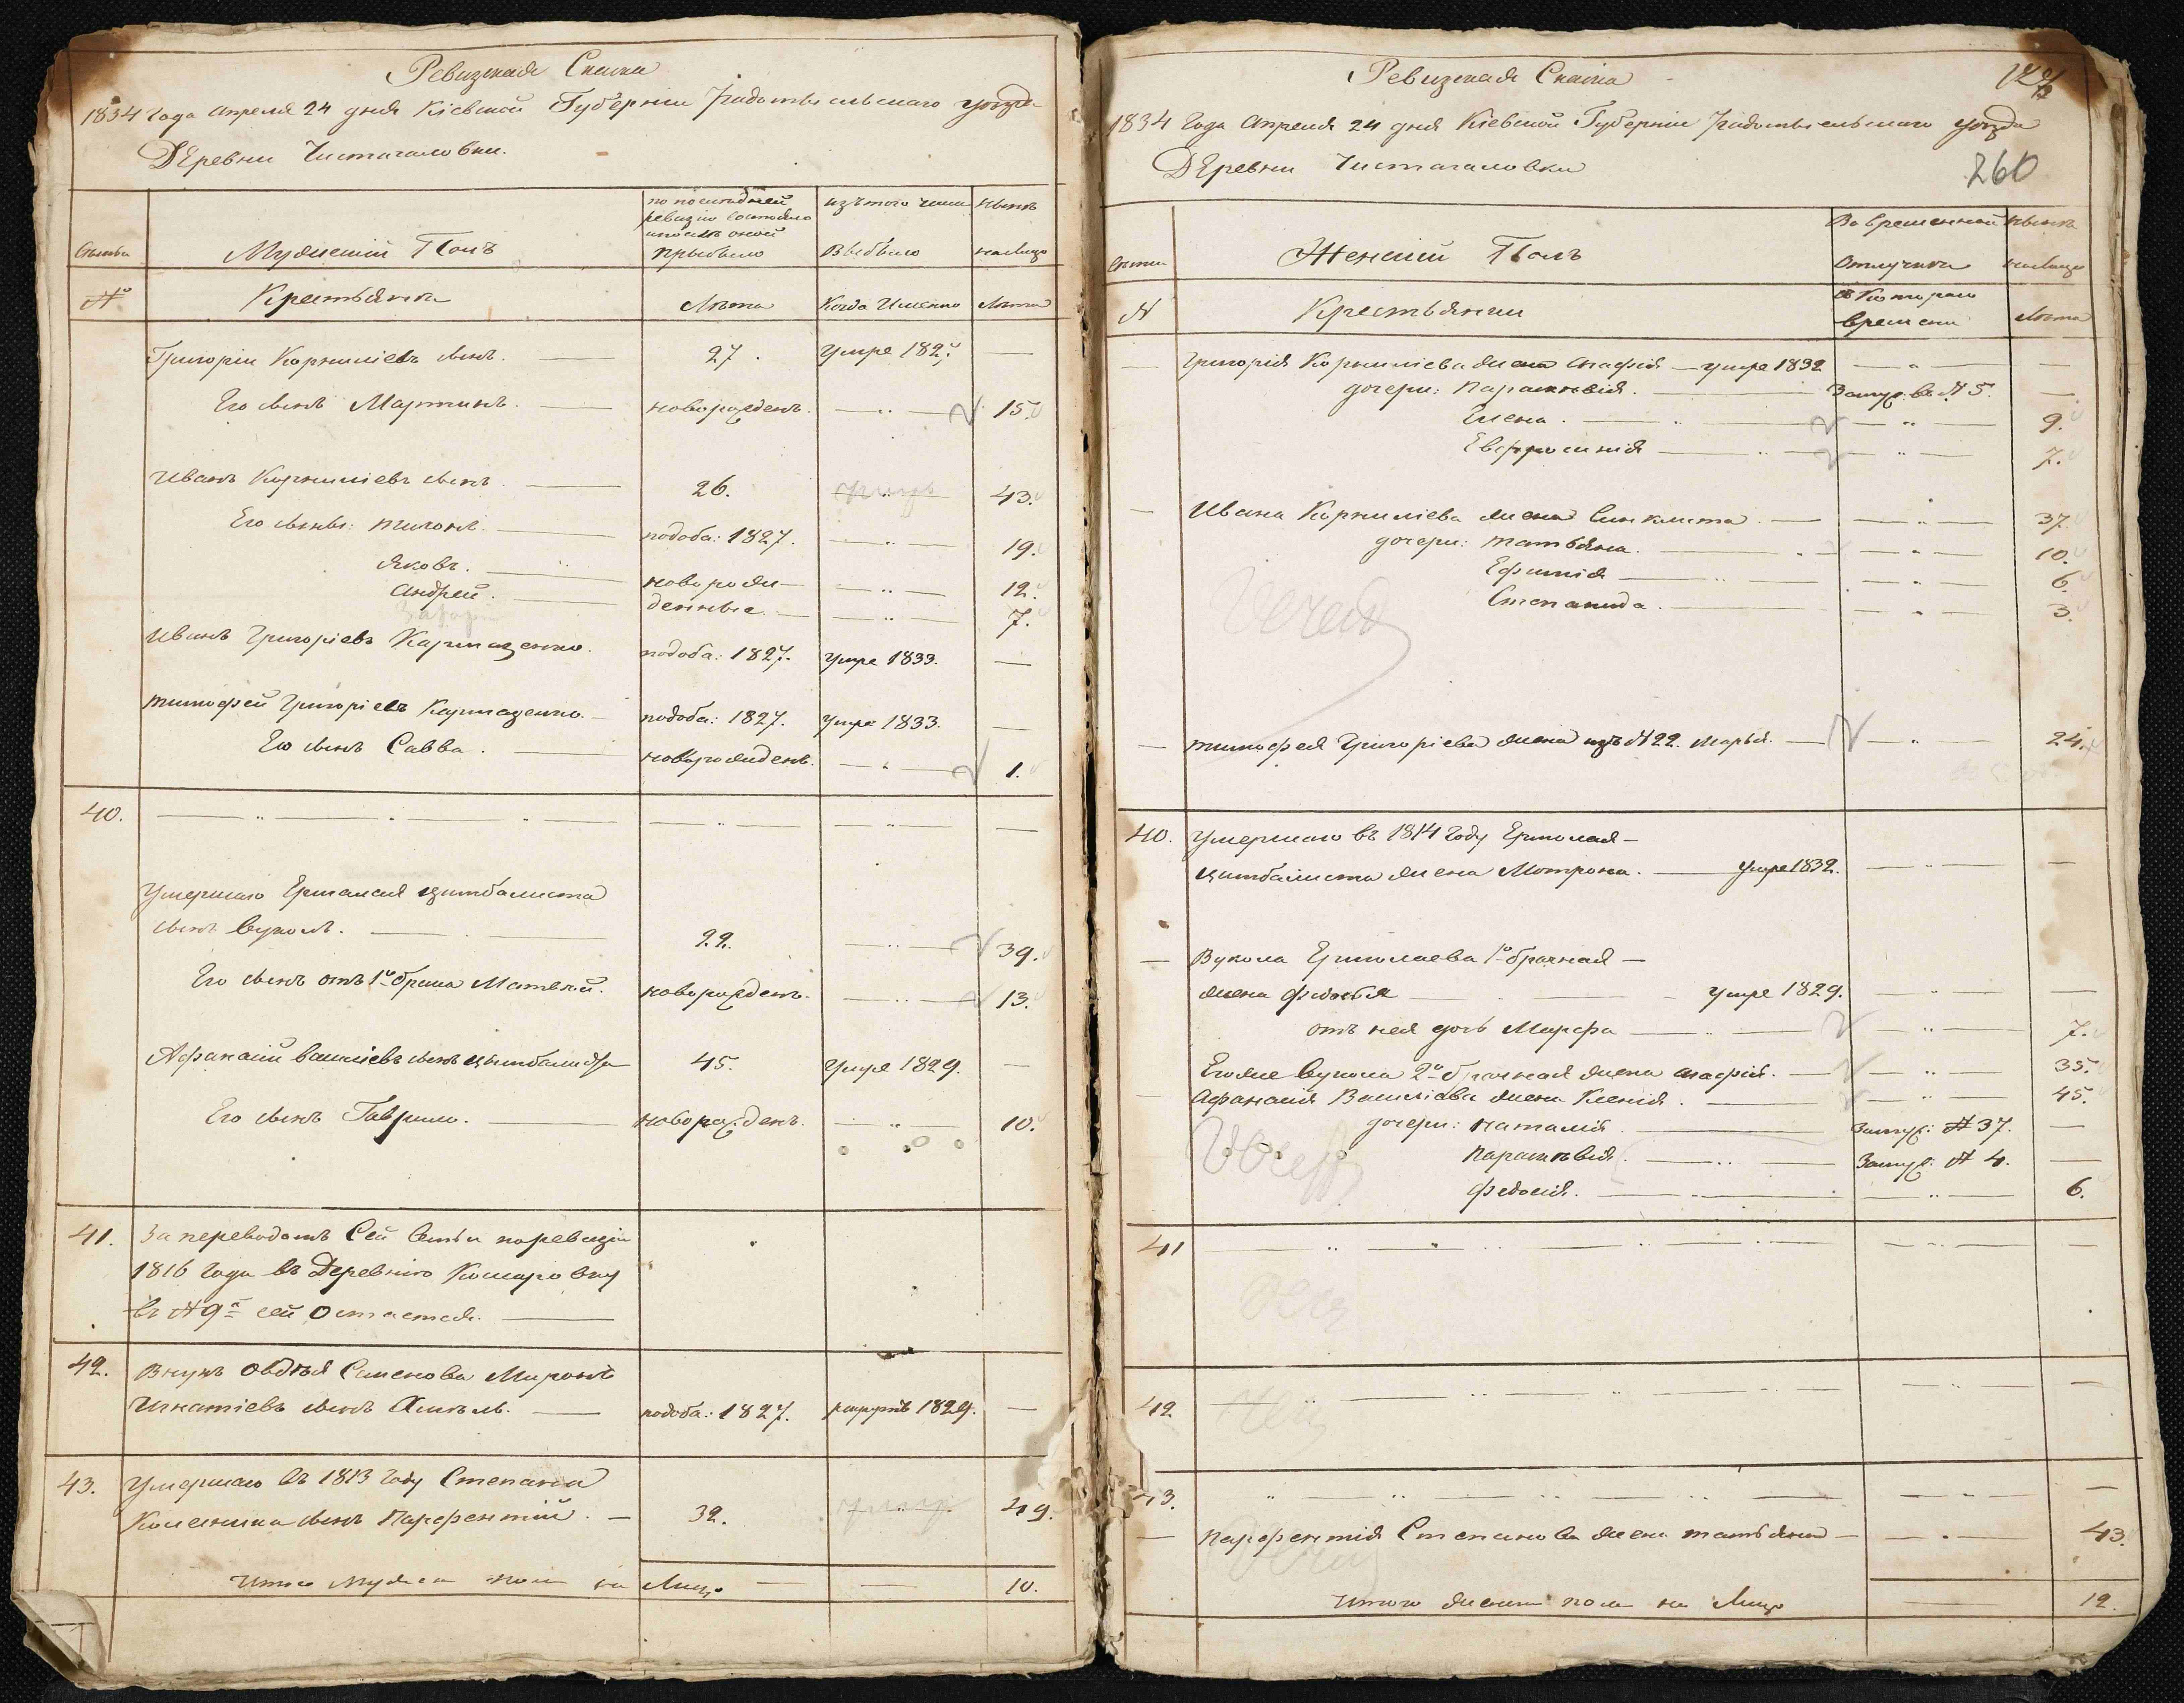 Ревизская Сказка
1834 года Апреля 24 дня Кіевской Губерніи Радомысльскаго уезда
Деревни Чистагаловки.
по последней
ревизіи состояло
и после оной
прыбыло
изъ того числа
Выбыло
ныне
налицо
Семьи
Мужескій Полъ
№
Крестьяне
Лета
Когда Именно
Лета
Григорій Корниліевъ сынъ. 27. умре 182
Его сынъ Мартинъ. новорожденъ. 15.
Иванъ Корниліевъ сынъ. 26. 43.
Его сыны: тихонъ. подоба: 1827. 19.
Яковъ. новорож 12.
Андрей. денные 7.
Иванъ Григоріевъ подоба: 1827. умре 1833.
тимофей Григоріевъ подоба: 1827. умре 1833.
Его сынъ Савва. новорожденъ. 1.
40.
Умершаго Ермолая цимбалиста
сынъ Вуколъ. 22. 39.
Его сынъ отъ 1о брака Матвей. новорожденъ. 13.
Афанасій Василіевъ сынъ цимбалиста 45. умре 1829.
Его сынъ Гаврило. новорожденъ. 10.
41. За переводомъ Сей Семьи поревизіи
1816 года въ Деревню Комаровку
въ № 9й сей Остается.
42. Внукъ Овдея Семенова Миронъ
Игнатіевъ сынъ подоба: 1827. 1829.
43. Умершаго въ 1813 году Степана
сынъ Парфентій. 32. 49.
Итого мужеска пола на Лицо 10.
Ревизская Сказка
260
1834 года Апреля 24 дня Кіевской Губерніи Радомысльскаго уезда
Деревни Чистагаловки
Во временной
Отлучке
ныне
налицо
Семьи
Женскій Полъ
№
Крестьянки
Съ Котораго
времени
Лета
Григорія Корниліева жена Агафія умре 1832
дочери: Парасковія. Замуж. въ № 5.
Елена. 9.
Евфросинія 7.
Ивана Корниліева жена Синклита. 37.
дочери: татьяна. 10.
Ефимія 6.
Степанида. 3.
тимофея Григоріева жена изъ № 22. Марья. 24.
40. Умершаго въ 1814 году Ермолая
цимбалиста жена Мотрона. умре 1832.
Вукола Ермолаева 1о брачная
жена Федосья умре 1829.
отъ нея дочь Марфа 7.
Егоже Вукола 2о брачная жена Агафія. 35.
Афанасія Василіева жена Ксенія. 45.
дочери: Наталія Замуж: № 37.
Парасковія. Замуж: № 4.
Федосія. 6.
41
42
43.
Парфентія Степанова жена татьяна 43.
Итого женска пола на Лицо 12.